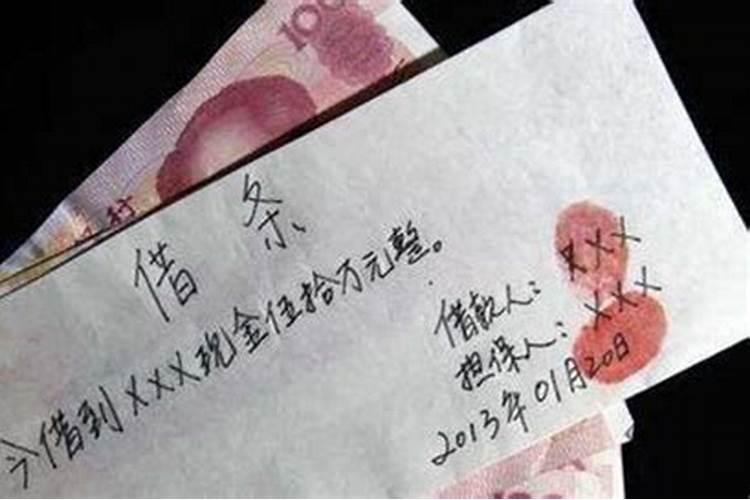 100
行
借条
今借到XXX现金伍拾万元整。
借款人：XXX
担保人：XXX
2013年01月20日